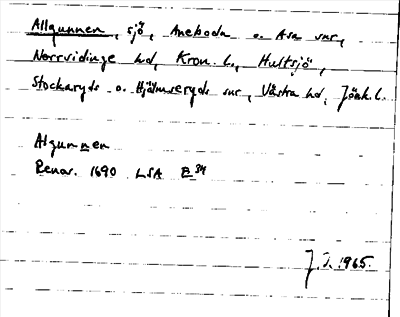 Allgunnen, sjö, Aneboda o. Asa snr,
Norrvidinge hd, Kron. l., Hultsjö,
Stockaryds o. Hjälmseryds snr, Västra hd, Jönk. l.
Algunnen
Renov. 1690 LSA E 34
J. I. 1965.